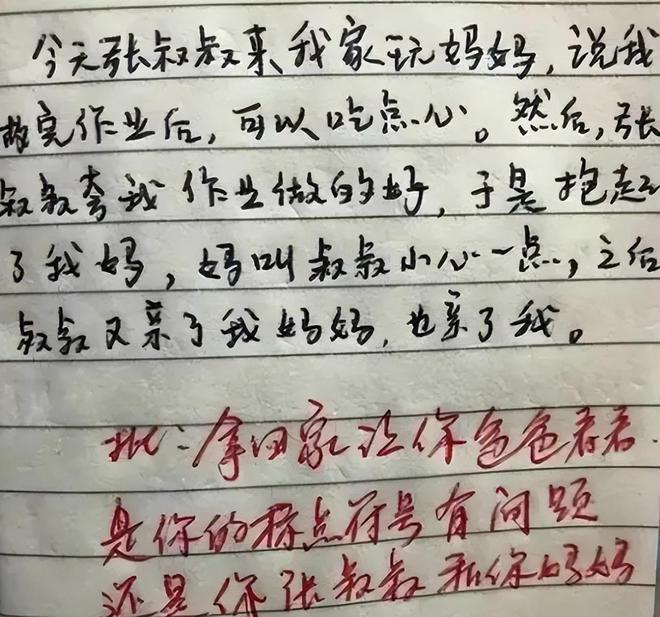 今天张叔叔来我家玩妈妈，说我
做完作业后，可以吃点心。然后，张
叔叔夸我作业做的好，于是抱起
了我妈，妈叫叔叔小心一点，之后
叔叔又亲了我妈妈，也亲了我。
批：拿回家让你爸爸看看.
是你的标点符号有问题
还是你张叔叔和你妈妈